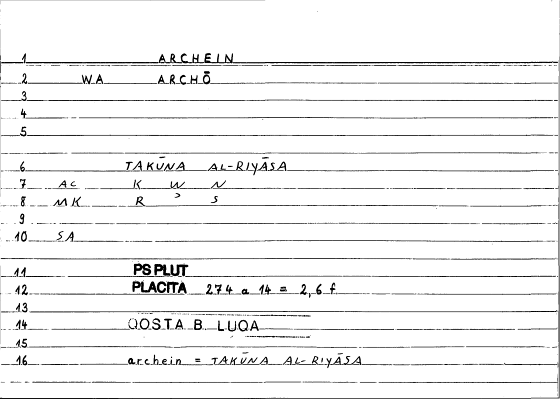 1 ARCHEIN
2 WA ARCHŌ
3
4
5
6 TAKŪNA AL-RIYĀSA
7 AC K W N
8 MK R ʾ S
9
10 SA
11 PS PLUT
12 PLACITA 274 a 14 = 2,6 f
13
14 QOSTA B. LUQA
15
16 archein = TAKŪNA AL-RIYĀSA